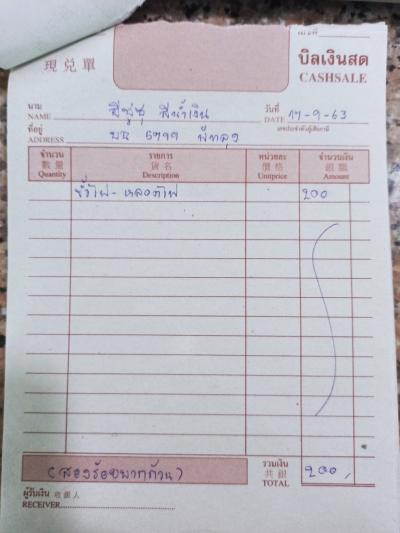 เล่มที่
現兌單
บิลเงินสด
CASHSALE
นาม
NAME อีซูซุ สีน้ำเงิน
วันที่
DATE 17-9-63
ที่อยู่
ADDRESS บน 5799 พัทลุง
เลขประจำตัวผู้เสียภาษี
จำนวน รายการ หน่วยละ จำนวนเงิน
數量 貨名 價格 銀額
Quantity Description Unitprice Amount
ขั้วไฟ - หลอดไฟ 200
(สองร้อยบาทถ้วน)
รวมเงิน
共銀
TOTAL 200
ผู้รับเงิน 收銀人
RECEIVER